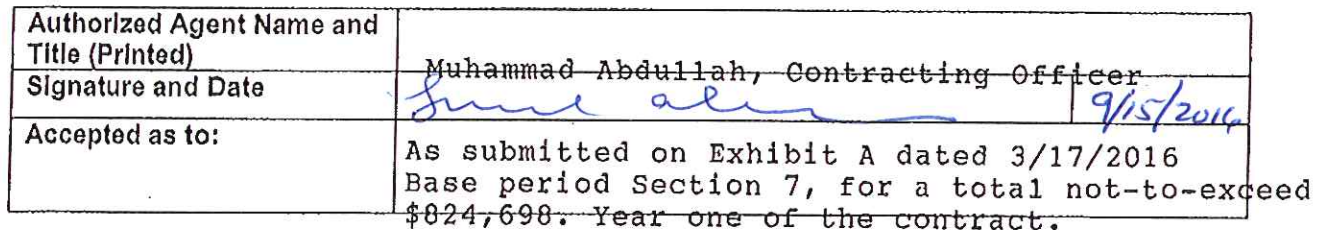 Authorized Agent Name and
Title (Printed)
Muhammad Abdullah, Contracting Officer
Signature and Date
9/15/2016
Accepted as to:
As submitted on Exhibit A dated 3/17/2016
Base period Section 7, for a total not-to-exceed
$824,698. Year one of the contract.